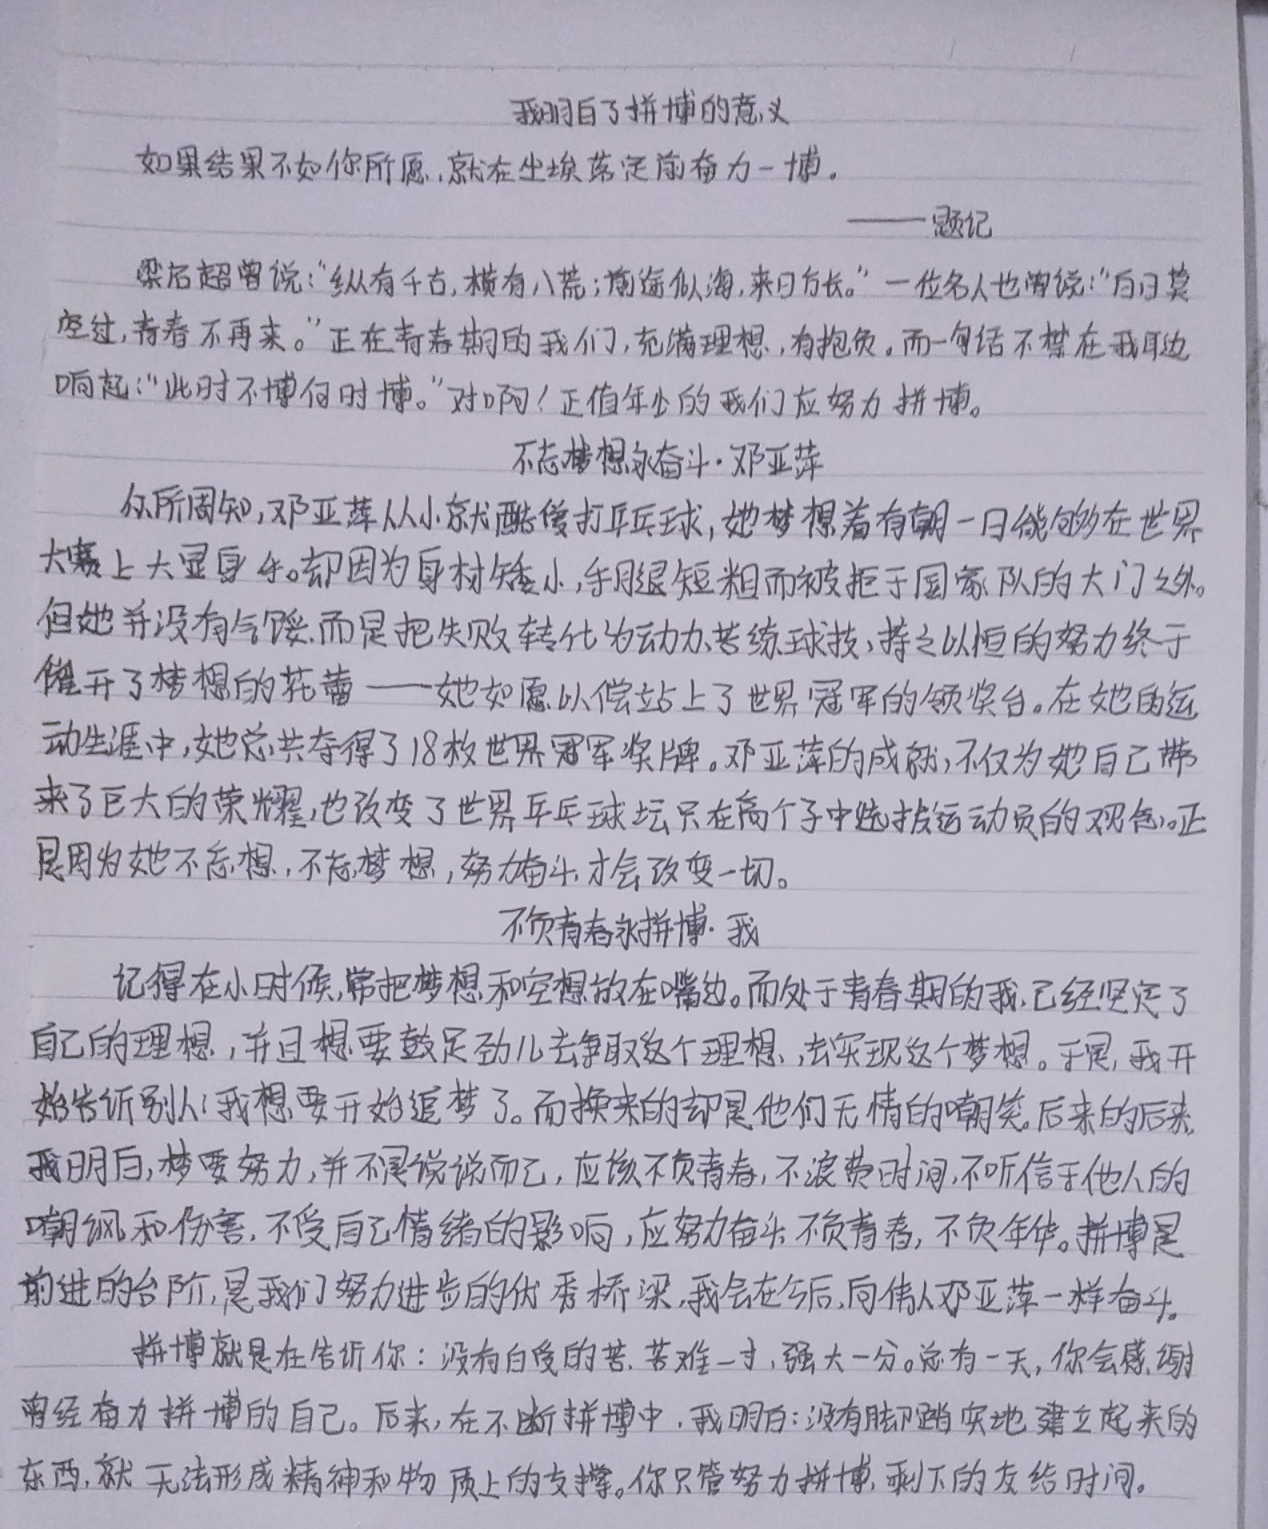 我明白了拼博的意义
如果结果不如你所愿,就在尘埃落定前奋力一博。
——题记
梁启超曾说:“纵有千古,横有八荒;前途似海,来日方长。”一位名人也曾说:“白日莫
空过,青春不再来。”正在青春期的我们,充满理想,有抱负。而一句话不禁在我耳边
响起:“此时不博何时博。”对啊!正值年少的我们应努力拼博。
不忘梦想永奋斗·邓亚萍
众所周知,邓亚萍从小就酷爱打乒乓球,她梦想着有朝一日能够在世界
大赛上大显身手。却因为身材矮小,手腿短粗而被拒于国家队的大门之外。
但她并没有气馁,而是把失败转化为动力、苦练球技,持之以恒的努力终于
催开了梦想的花蕾——她如愿以偿站上了世界冠军的领奖台。在她的运
动生涯中,她总共夺得了18枚世界冠军奖牌。邓亚萍的成就,不仅为她自己带
来了巨大的荣耀,也改变了世界乒乓球坛只在高个子中选拔运动员的观念。正
是因为她不忘想,不忘梦想,努力奋斗才会改变一切。
不负青春永拼博·我
记得在小时候,常把梦想和空想放在嘴边。而处于青春期的我,已经坚定了
自己的理想,并且想要鼓足劲儿去争取这个理想,去实现这个梦想。于是,我开
始告诉别人:我想要开始追梦了。而换来的却是他们无情的嘲笑。后来的后来,
我明白,梦要努力,并不是说说而已,应该不负青春,不浪费时间,不听信于他人的
嘲讽和伤害,不受自己情绪的影响,应努力奋斗不负青春,不负年华。拼博是
前进的台阶,是我们努力进步的优秀桥梁,我会在今后,向伟人邓亚萍一样奋斗。
拼博就是在告诉你:没有白受的苦,苦难一寸,强大一分。总有一天,你会感谢
曾经奋力拼博的自己。后来,在不断拼博中,我明白:没有脚踏实地建立起来的
东西,就无法形成精神和物质上的支撑。你只管努力拼博,剩下的交给时间。